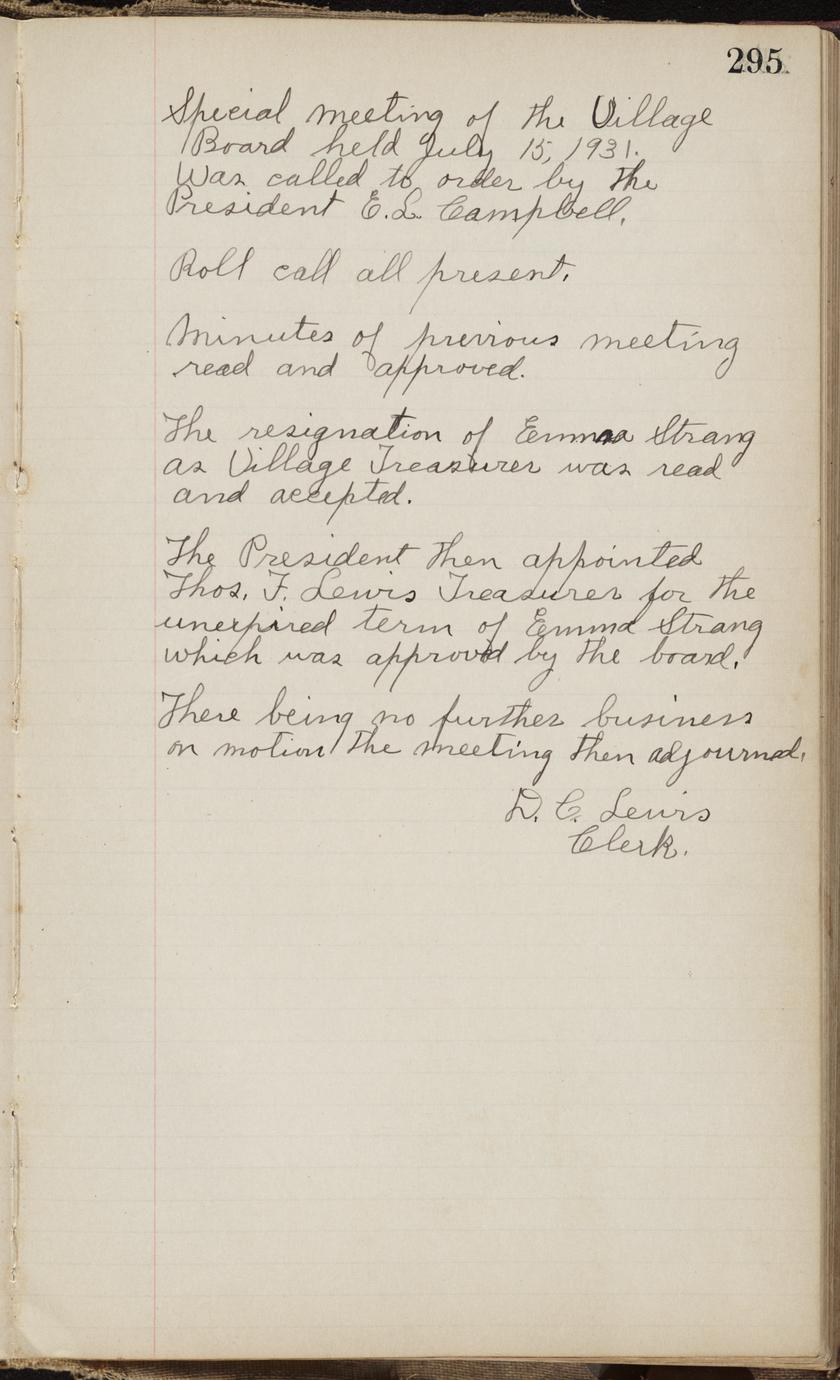 295
Special meeting of the Village
Board held July 15, 1931.
Was called to order by the
President E.L. Campbell.
Roll call all present.
Minutes of previous meeting
read and approved.
The resignation of Emma Strang
as Village Treasurer was read
and accepted.
The President then appointed
Thos. F. Lewis Treasurer for the
unexpired term of Emma Strang
which was approved by the board.
There being no further business
on motion the meeting then adjourned.
D. C. Lewis
Clerk.